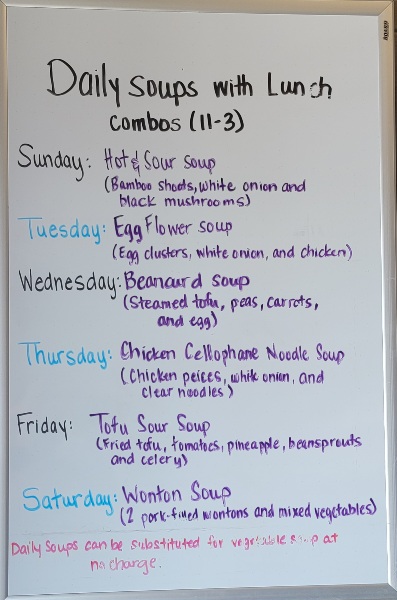 Daily Soups with Lunch
combos (11-3)
Sunday: Hot & Sour soup
(Bamboo shoots, white onion and
black mushrooms)
Tuesday: Egg Flower soup
(Egg clusters, white onion, and chicken)
Wednesday: Beancurd soup
(Steamed tofu, peas, carrots,
and egg)
Thursday: Chicken Cellophane Noodle Soup
(Chicken peices, white onion, and
clear noodles)
Friday: Tofu Sour Soup
(Fried tofu, tomatoes, pineapple, beansprouts
and celery)
Saturday: Wonton Soup
(2 pork-filled wontons and mixed vegetables)
Daily Soups can be substituted for vegetable soup at
no charge.